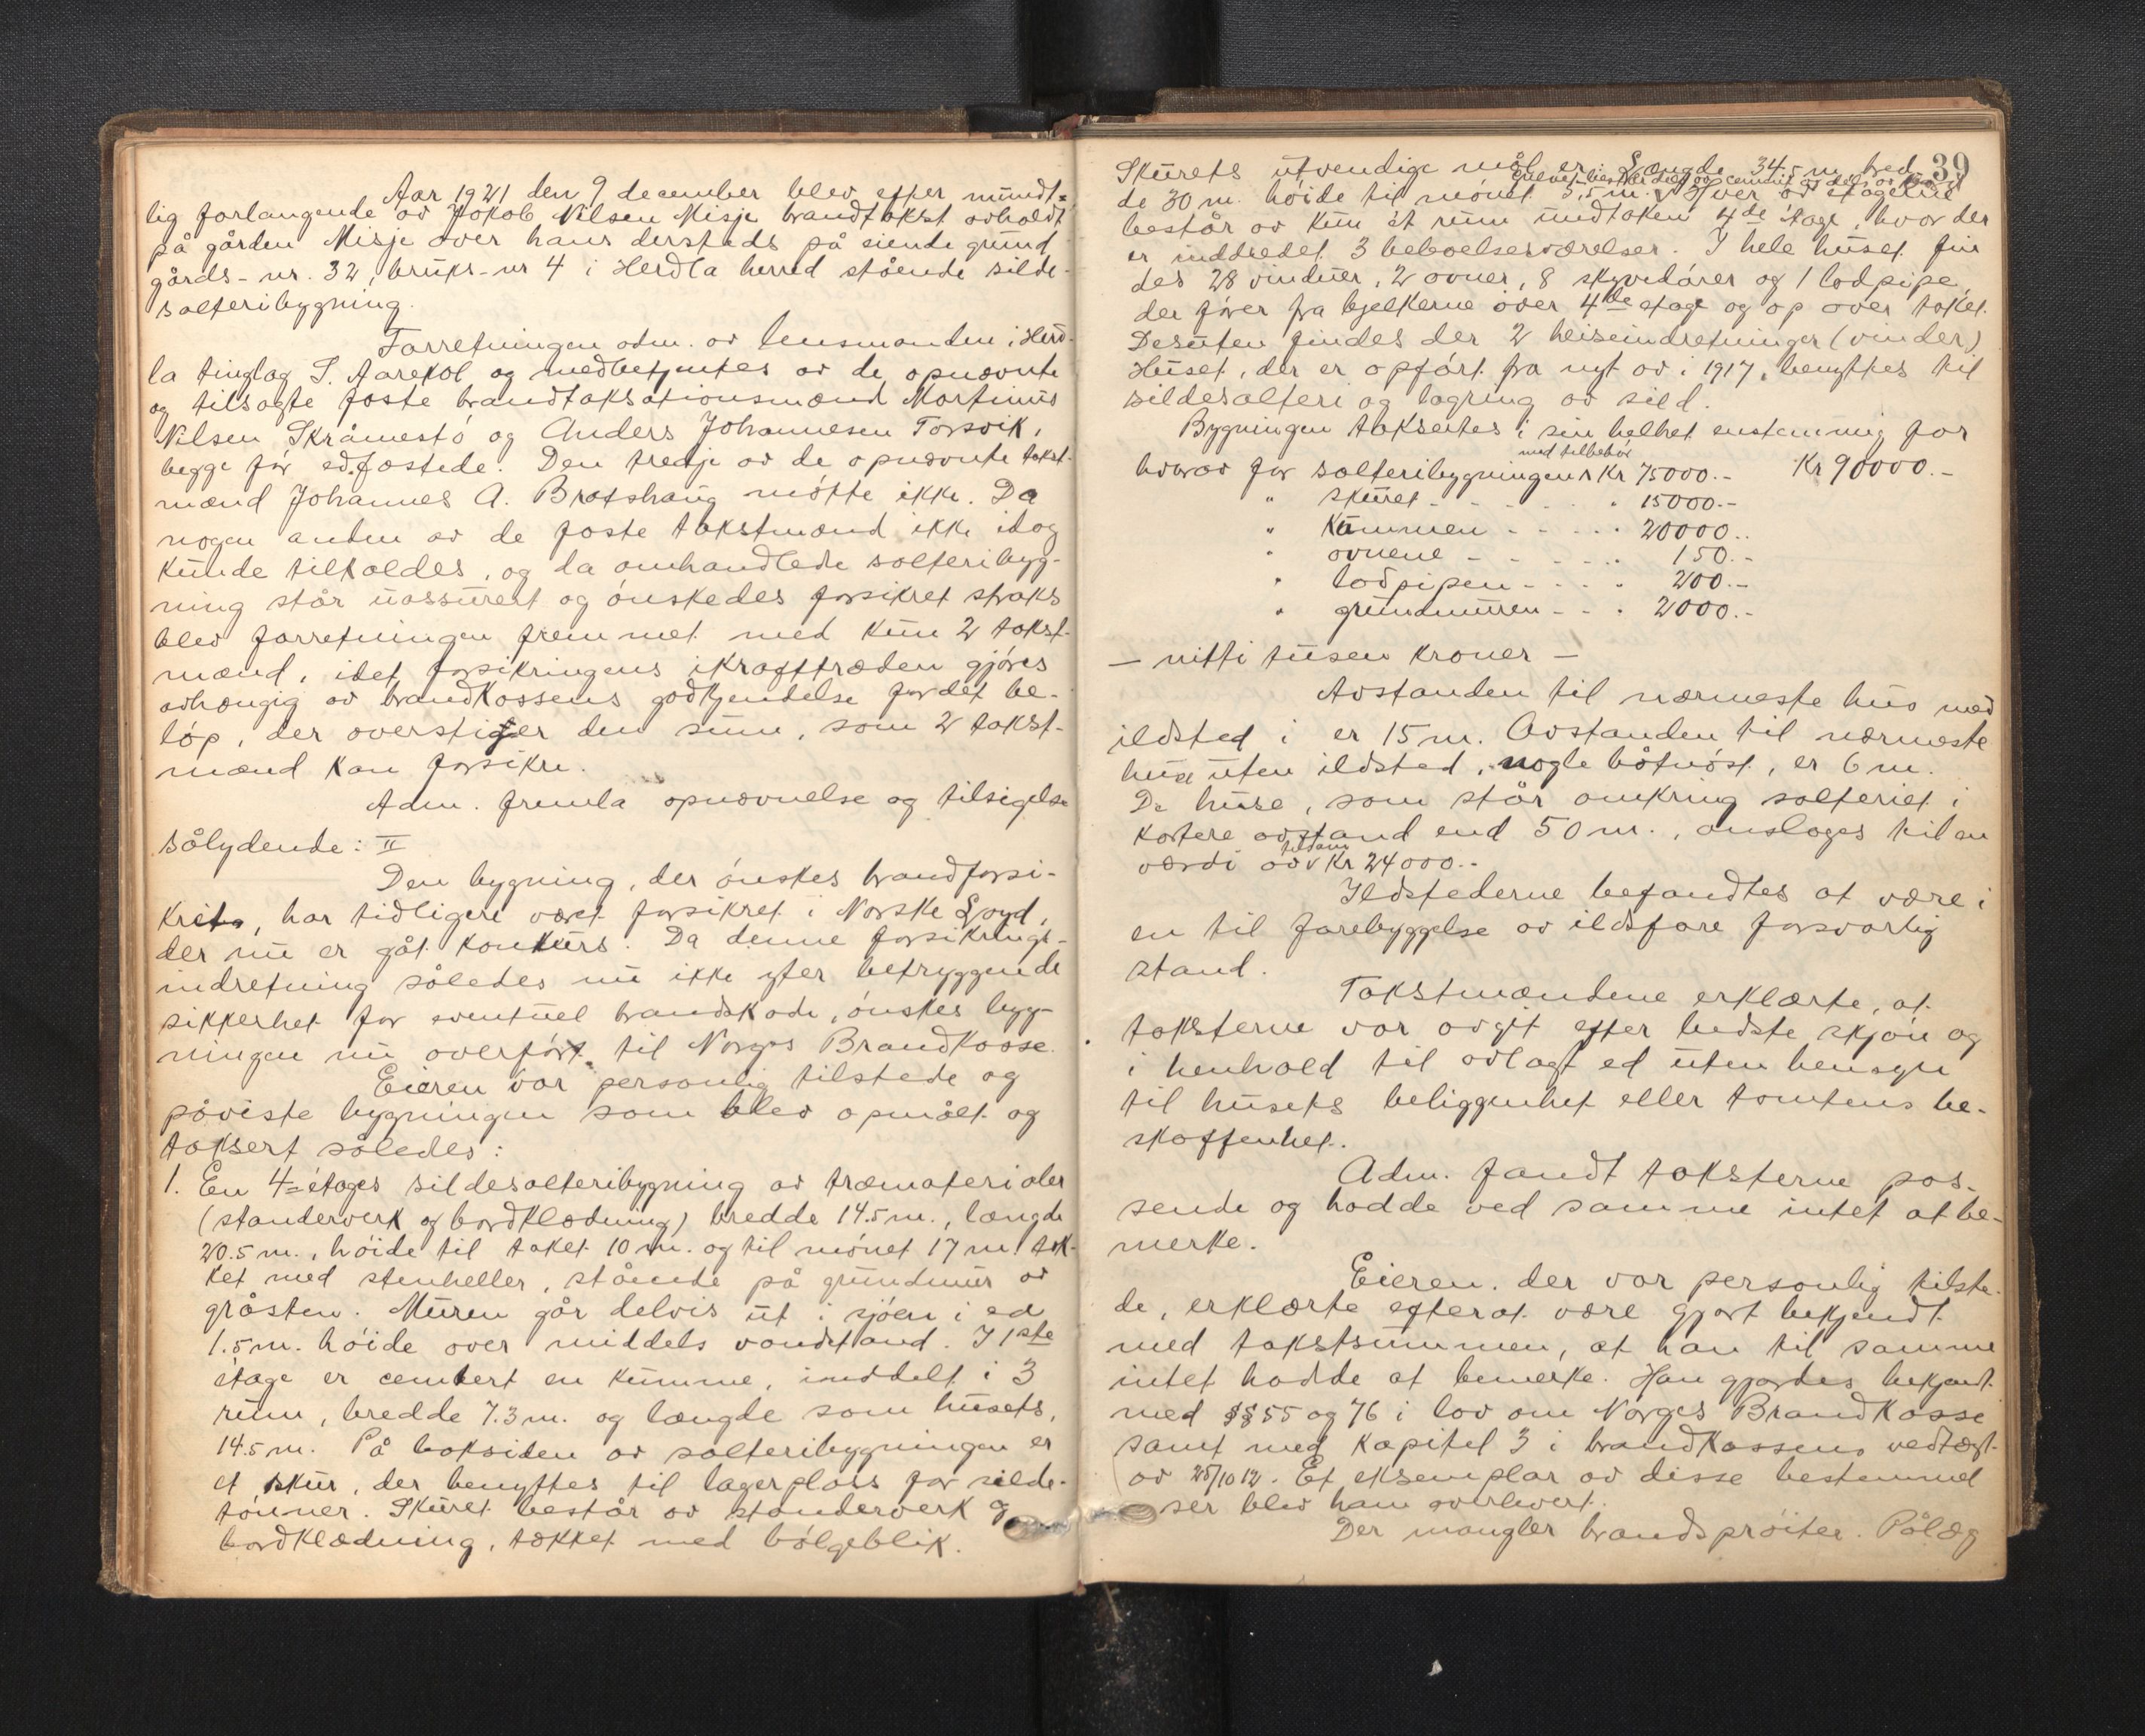 Aar 1921 den 9 december blev efter mundt-
lig forlangende av Jakob Nilsen Misje brandtakst avholdt
på gården Misje over hans dersteds på eiende grund
gårds-nr. 32, bruks-nr 4 i Herdla herred stående silde-
salteribygning.
Forretningen adm. av lensmanden i Herd-
la tinglag S. Aarekol og medbetjentes av de opnævnte
og tilsagte faste brandtaksationsmænd Martinus
Nilsen Skråmestö og Anders Johannesen Torsvik,
begge för edfæstede. Den tredje av de opnævnte takst-
mænd Johannes A. Bratshaug mötte ikke. Da
nogen anden av de faste takstmænd ikke idag
kunde tilkaldes, og da omhandlede salteribyg-
ning står uassurert og önskedes forsikret straks
blev forretningen fremmet med kun 2 takst-
mænd, idet forsikringens ikrafttræden gjöres
avhængig av brandkassens godkjendelse for det be-
löp, der overstiger den sum, som 2 takst-
mænd kan forsikre.
Adm. fremla opnævnelse og tilsigelse
sålydende: II
Den bygning, der önskes brandforsi-
kret, har tidligere været forsikret i Norske Loyd,
der nu er gåt konkurs. Da denne forsikrings-
indretning således nu ikke yter betryggende
sikkerhet for eventuel brandskade, önskes byg-
ningen nu overfört til Norges Brandkasse.
Eieren var personlig tilstede og
påviste bygningen som blev opmålt og
taksert således:
1. En 4-étages sildesalteribygning av træmaterialer
(standerverk og bordklædning) bredde 14.5 m., længde
20.5 m., höide til taket 10 m. og til mönet 17 m. tæk-
ket med stenheller, stående på grundmur av
gråsten. Muren går delvis ut i sjöen i ca
1.5 m. höide over middels vandstand. I 1ste
étage er cementert en kumme, inddelt i 3
rum, bredde 7.3 m. og længde som husets,
14.5 m. På baksiden av salteribygningen er
et skur, der benyttes til lagerplass for silde-
tönner. Skuret består av standerverk og
bordklædning, tækket med bölgeblik.
39
Skurets utvendige mål er: Længde 34.5 m., bred-
de 30 m. höide til mönet 5,5 m. Hver av etagerne
består av kun ét rum undtaken 4de étage, hvor der
er inddredet 3 beboelsesværelser. I hele huset fin
des 28 vinduer, 2 ovner, 8 skyvedörer og 1 lodpipe,
der förer fra bjelkerne over 4de etage og op over taket.
Desuten findes der 2 heiseindretninger (vinder)
Huset, der er opfört fra nyt av i 1917, benyttes til
sildesalteri og lagring av sild.
Bygningen takseres i sin helhet enstemmig for
Kr 90000.-
med tilbehör
hvorav for salteribygningen Kr 75000.-
" skuret - - - - " 15000.-
" kummen - - - - " 20000.-
" ovnene - - - - " 150.-
" lodpipen - - - " 200.-
" grundmuren - - " 2000.-
- nitti tusen kroner -
Avstanden til nærmeste hus med
ildsted i er 15 m. Avstanden til nærmeste
hus uten ildsted, nogle båtnöst, er 6 m.
De huse, som står omkring salteriet i
kortere avstand end 50 m., anslages til en
værdi av tilsam Kr 24000.-
Ildstederne befandtes at være i
en til forebyggelse av ildsfare forsvarlig
stand.
Takstmændene erklærte, at
taksterne var avgit efter bedste skjön og
i henhold til avlagt ed uten hensyn
til husets beliggenhet eller tomtens be-
skaffenhet.
Adm. fandt taksterne pas-
sende og hadde ved samme intet at be-
merke.
Eieren, der var personlig tilste-
de, erklærte efter at være gjort bekjendt
med takstsummen, at han til samme
intet hadde at bemerke. Han gjordes bekjent
med §§ 55 og 76 i lov om Norges Brandkasse
samt med kapitel 3 i brandkassens vedtægt-
av 25/10 12. Et eksemplar av disse bestemmel
ser blev ham overlevert.
Der mangler brandspröiter. Pålæg